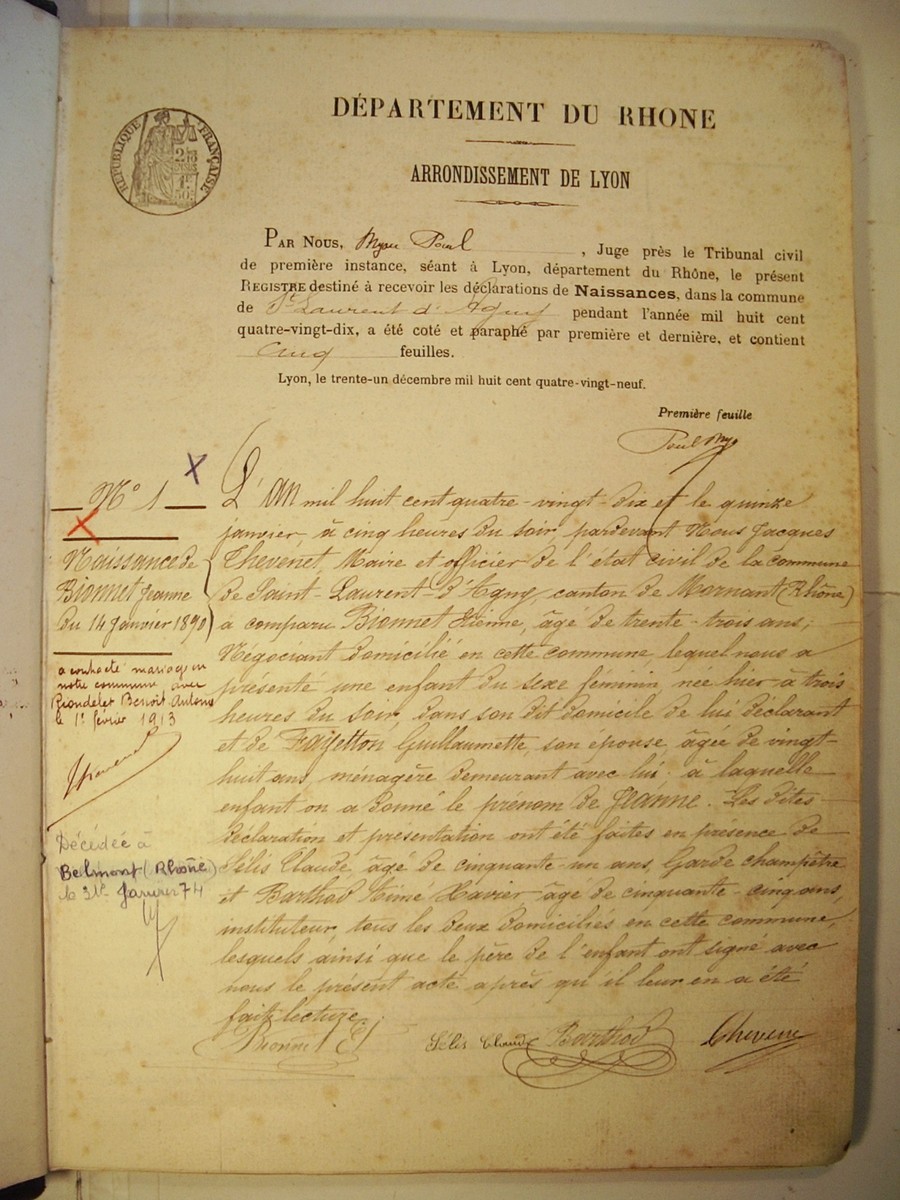 DÉPARTEMENT DU RHONE
RÉPUBLIQUE FRANÇAISE
ARRONDISSEMENT DE LYON
PAR NOUS, Paul, Juge près le Tribunal civil
de première instance, séant à Lyon, département du Rhône, le présent
REGISTRE destiné à recevoir les déclarations de Naissances, dans la commune
de St Laurent d'Agny pendant l'année mil huit cent
quatre-vingt-dix, a été coté et paraphé par première et dernière, et contient
Cinq feuilles.
Lyon, le trente-un décembre mil huit cent quatre-vingt-neuf.
Première feuille
X
N° 1
X
Naissance de
Bionnet Jeanne
du 14 Janvier 1890
a contracté mariage en
notre commune avec
Benoit
le 1er février 1913
Décédée à
Belmont (Rhône)
Janvier 74
L'an mil huit cent quatre-vingt-dix et le quinze
janvier, à cinq heures du soir, pardevant Nous Jacques
Thevenet, Maire et officier de l'état civil de la commune
de Saint-Laurent-d'Agny, canton de Mornant (Rhône)
a comparu Bionnet Etienne, âgé de trente-trois ans,
Négociant domicilié en cette commune, lequel nous a
présenté une enfant du sexe féminin, née hier à trois
heures du soir, dans son dit domicile de lui déclarant
et de Fayetton Guillaumette, son épouse, âgée de vingt-
huit ans, ménagère demeurant avec lui; à laquelle
enfant on a donné le prénom de Jeanne. Les dites
déclaration et présentation ont été faites en présence de
Félis Claude, âgé de cinquante-un ans, Garde champêtre
et Barthod Aimé Xavier, âgé de cinquante-cinq ans,
instituteur, tous les deux domiciliés en cette commune,
lesquels ainsi que le père de l'enfant ont signé avec
nous le présent acte après qu'il leur en a été
fait lecture.
Bionnet Et Félis Claude Barthod Thevenet